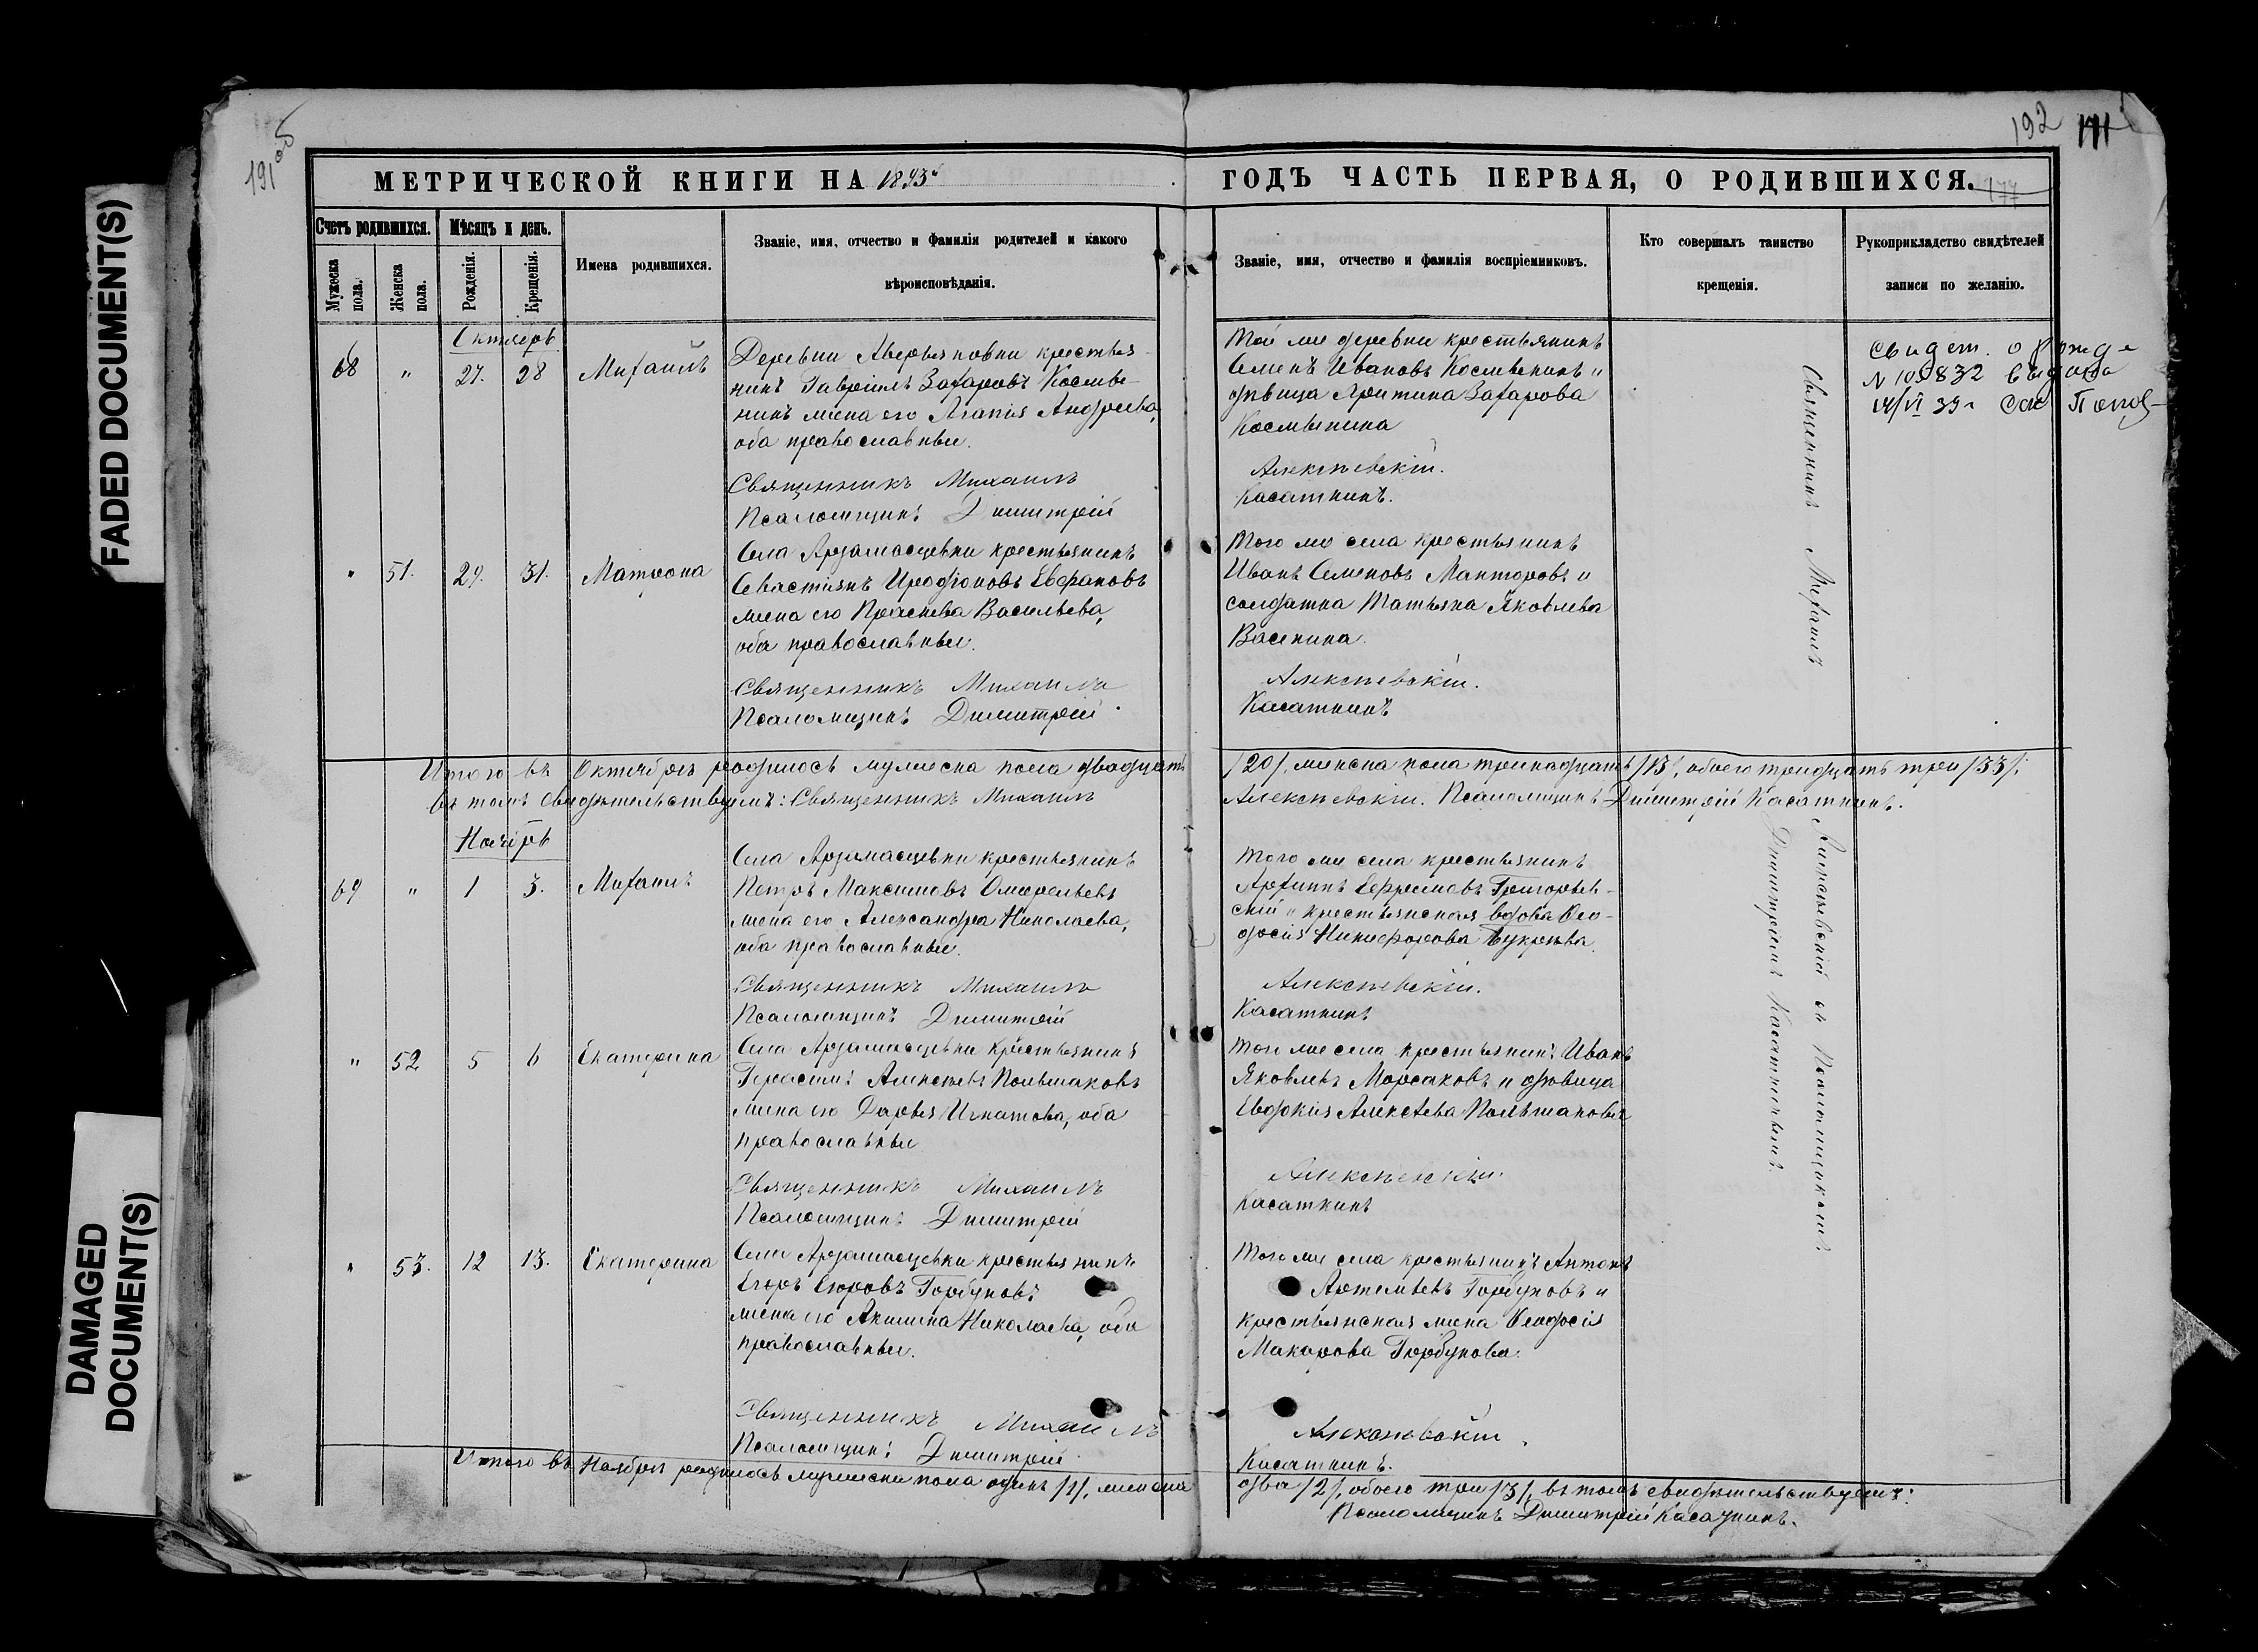 FADED DOCUMENT(S)
DAMAGED DOCUMENT(S)
191 об
192
171
177
МЕТРИЧЕСКОЙ КНИГИ НА 1893й ГОДЪ ЧАСТЬ ПЕРВАЯ, О РОДИВШИХСЯ.
Счетъ родившихся.
Мужеска пола.
Женска пола.
Мѣсяцъ и день.
Рожденія.
Крещенія.
Имена родившихся.
Званіе, имя, отчество и фамилія родителей и какого
вѣроисповѣданія.
Званіе, имя, отчество и фамилія воспріемниковъ.
Кто совершалъ таинство
крещенія.
Рукоприкладство свидѣтелей
записи по желанію.
Октябрь
68 " 27. 28 Михаилъ
Деревни Аверьяновки крестья-
нинъ Гавріилъ Захаровъ Косты-
нинъ жена его Агапія Андреева,
оба православные.
Священникъ Михаилъ
Псаломщикъ Димитрій
Той же деревни крестьянинъ
Семенъ Ивановъ и
дѣвица Захарова
Алексѣевскій.
Касаткинъ.
Свидет. о рожд-
N 105832 выдано
14/VI 39г
" 51. 29. 31. Матрона
Села Арзамасцевки крестьянинъ
Севастіянъ Иродіоновъ
жена его Прасковья Васильева,
оба православные.
Священникъ Михаилъ
Псаломщикъ Димитрій
Того же села крестьянинъ
Иванъ Семеновъ Манторовъ и
солдатка Татьяна Яковлева
Васенина.
Алексѣевскій.
Касаткинъ
Итого въ Октябрѣ родилось мужеска пола двадцать /20/, женска пола тринадцать /13/, обоего тридцать три /33/;
въ томъ свидѣтельствуемъ: Священникъ Михаилъ Алексѣевскій. Псаломщикъ Димитрій Касаткинъ.
Ноябрь
69 " 1 3. Михаилъ
Села Арзамасцевки крестьянинъ
Петръ Максимовъ Омельевъ
жена его Александра Николаева,
оба православные.
Священникъ Михаилъ
Псаломщикъ Димитрій
Того же села крестьянинъ
Архиппъ Ефремовъ Григорьев-
скій и крестьянская вдова Ѳео-
досія Никифорова Букрѣева.
Алексѣевскій.
Касаткинъ
" 52 5 6 Екатерина
Села Арзамасцевки крестьянинъ
Герасимъ Алексѣевъ Польшаковъ
жена его Дарья Игнатова, оба
православные
Священникъ Михаилъ
Псаломщикъ Димитрій
Того же села крестьянинъ Иванъ
Яковлевъ Морсаковъ и дѣвица
Евдокія Алексѣева Польшакова
Алексѣевскій.
Касаткинъ
" 53. 12 13. Екатерина
Села Арзамасцевки крестьянинъ
Егоръ Егоровъ Горбуновъ
жена его Акилина Николаева, оба
православные.
Священникъ Михаилъ
Псаломщикъ Димитрій
Того же села крестьянинъ Антонъ
Артемьевъ Горбуновъ и
крестьянская жена Ѳеодосія
Макарова Горбунова.
Алексѣевскій
Касаткинъ.
Священникъ Михаилъ
Алексѣевскій съ Псаломщикомъ
Димитріемъ Касаткинымъ.
Итого въ Ноябрѣ родилось мужеска пола одинъ /1/, женска два /2/, обоего три /3/, въ томъ свидѣтельствуемъ:
Псаломщикъ Димитрій Касаткинъ.